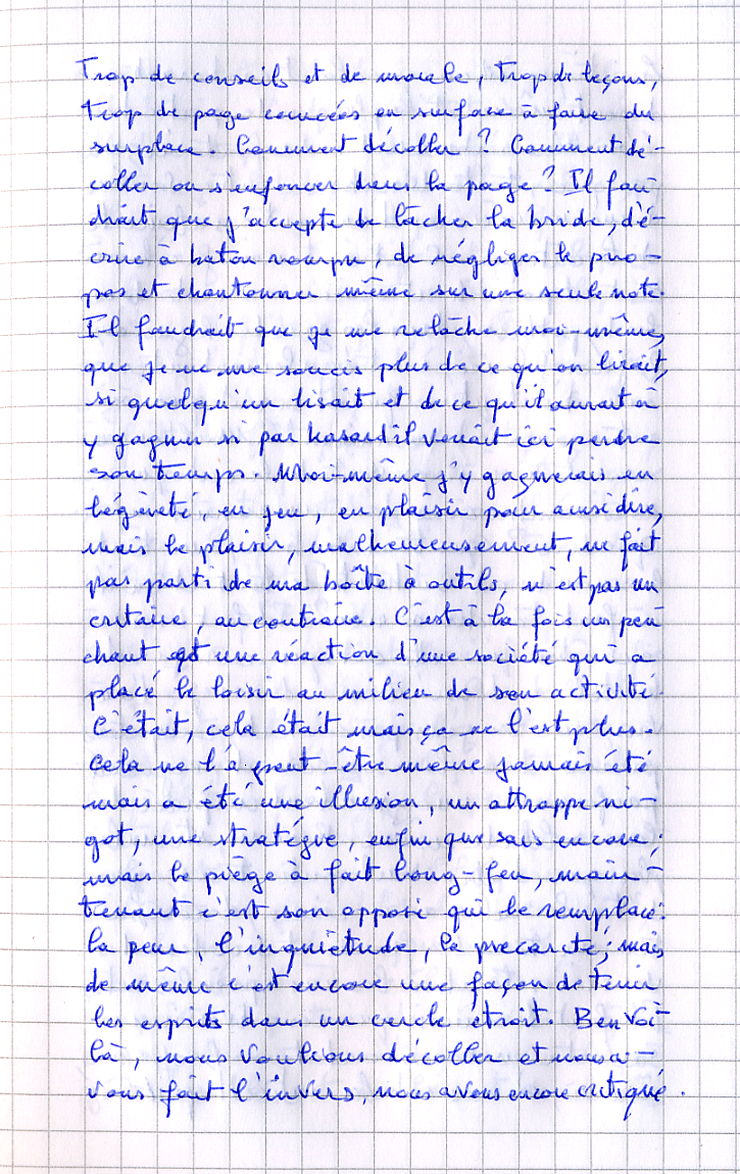 Trop de conseils et de morale, trop de leçons,
trop de page coincées en surface à faire du
surplace. Comment décoller ? Comment dé-
coller ou s'enfoncer dans la page ? Il fau
drait que j'accepte de lâcher la bride, d'é-
crire à baton rompu, de négliger le pro-
pos et chantonner même sur une seule note.
Il faudrait que je me relâche moi-même,
que je ne me soucis plus de ce qu'on lirait,
si quelqu'un lisait et de ce qu'il aurait à
y gagner si par hasard il venait ici perdre
son temps. Moi-même j'y gagnerais en
légèreté, en jeu, en plaisir pour ainsi dire,
mais le plaisir, malheureusement, ne fait
pas parti de ma boîte à outils, n'est pas un
critaire, au contraire. C'est à la fois un pen
chant et une réaction d'une société qui a
placé le loisir au milieu de son activité.
C'était, cela était mais ça ne l'est plus.
Cela ne l'a peut-être même jamais été
mais a été une illusion, un attrappe ni-
got, une stratégie, enfin que sais encore ;
mais le piège à fait long-feu, main-
tenant c'est son opposé qui le remplace :
la peur, l'inquiétude, la precarité ; mais
de même c'est encore une façon de tenir
les esprits dans un cercle étroit. Ben voi-
là, nous voulions décoller et nous a-
vons fait l'invers, nous avons encore critiqué.